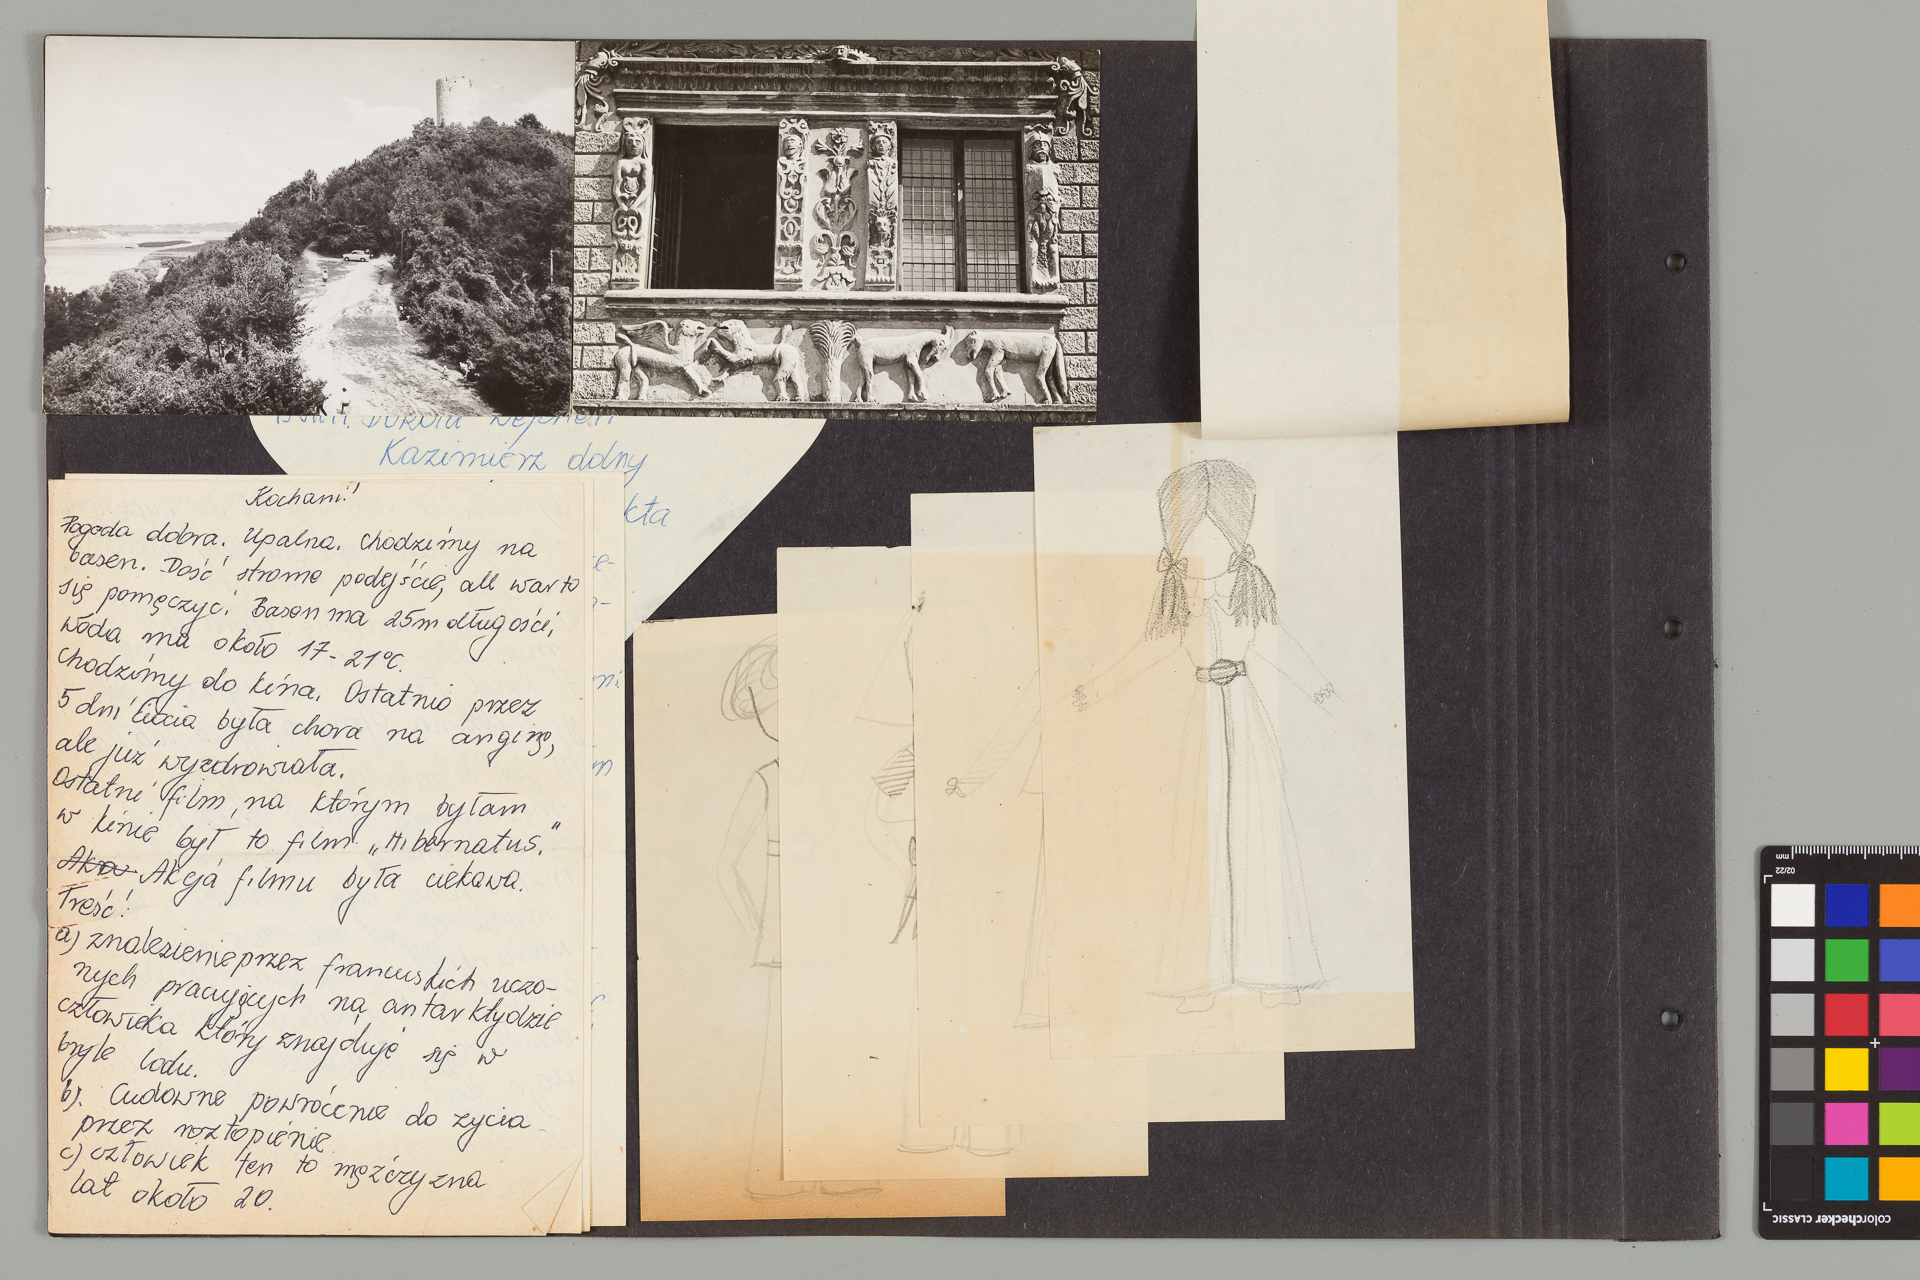 Kazimierz dolny
kta
Kochani!
Pogoda dobra. Upalna. Chodzimy na
basen. Dość strome podejście, ale warto
się pomęczyć. Basen ma 25m długości,
woda ma około 17-21°C.
Chodzimy do kina. Ostatnio przez
5 dni Ciocia była chora na anginę,
ale już wyzdrowiała.
Ostatni film, na którym byłam
w kinie był to film „Hibernatus."
Akcja filmu była ciekawa.
Treść:
a) znalezienie przez francuskich uczo-
nych pracujących na antarktydzie
człowieka który znajduje się w
bryle lodu.
b). Cudowne powrócenie do życia
przez roztopienie
c) człowiek ten to mężczyzna
lat około 20.
mm
02/22
colorchecker CLASSIC